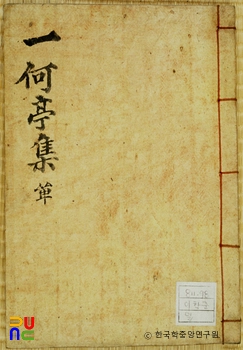 一何亭集 單
PUNC
© 한국학중앙연구원